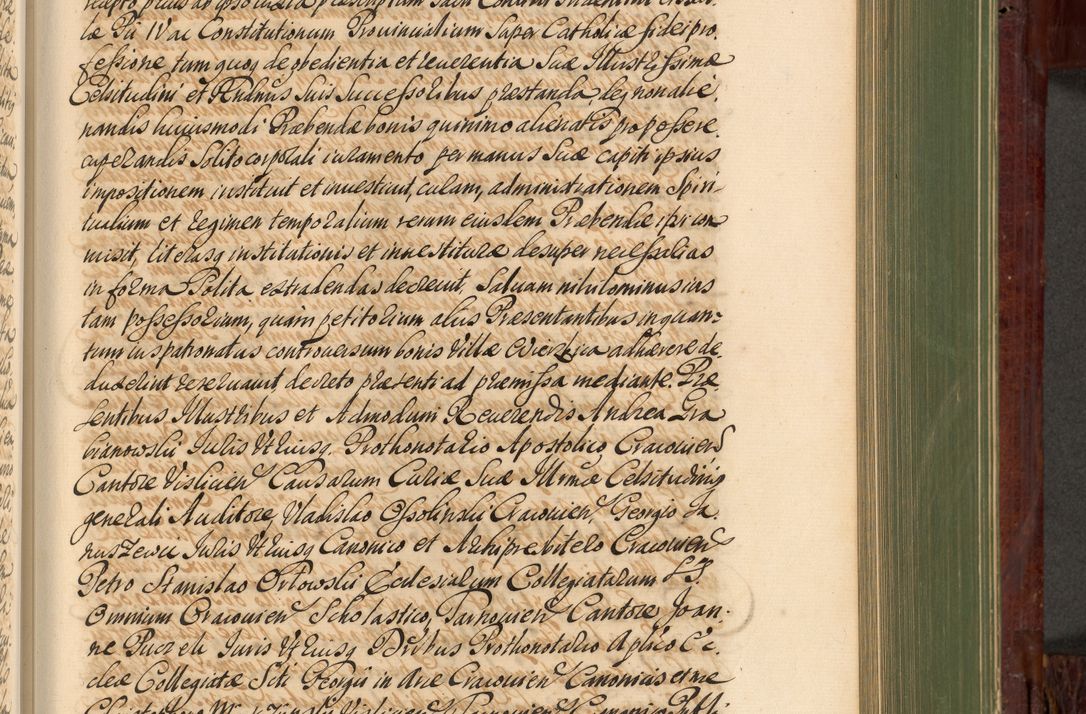 læ Pii IV ac Constitutionum Provincialium super Catholicæ fidei pro
fessione, tam quoq de obedientia et reverentia Suæ Illustrissimæ
Celsitudini et Rndnus Suis Successoribus præstanda, deq non alie,
nandis huiusmodi Præbendæ bonis quinimo alienatis pro posse re,
cuperandis Solito corporali iuramento, per manus Suæ capiti ipsius
impositionem instituit et investivit, curam, administrationem Spiri-
tualium et regimen temporalium rerum eiusdem Præbendæ ipsi com
misit, literasq institutionis et investituræ desuper necessarias
in forma Solita extradendas decrevit, Salvam nihilominus ius
tam possessorium, quàm petitorium aliis Præsentantibus in quan-
tum ius patronatus controversum bonis Villæ adhærere de,
duxerint reservavit decreto præsenti ad præmissa mediante. Præ
sentibus Illustribus et Admodum Reverendis Andrea Gra
bianowski Iuris Utriusq. Prothonotario Apostolico Cracovien
Cantore Vislicien Causarum Curiæ Suæ Illrmæ Celsitudinis
generali Auditore, Vladislao Ossolinski Cracovien, Georgio Ja,
nuszewic Iuris Utriusq Canonico et Archipresbitero Cracovien
Petro Stanislao Orłowski Ecclesiarum Collegiatarum SS.
Omnium Cracovien Scholastico, Tarnovien Cantore, Joan-
ne Puczek Iuris Utriusq Dribus Prothonotario Aplico Ec,
clesiæ Collegiatæ Scti Georgii in Arce Cracovien Canonicis et me